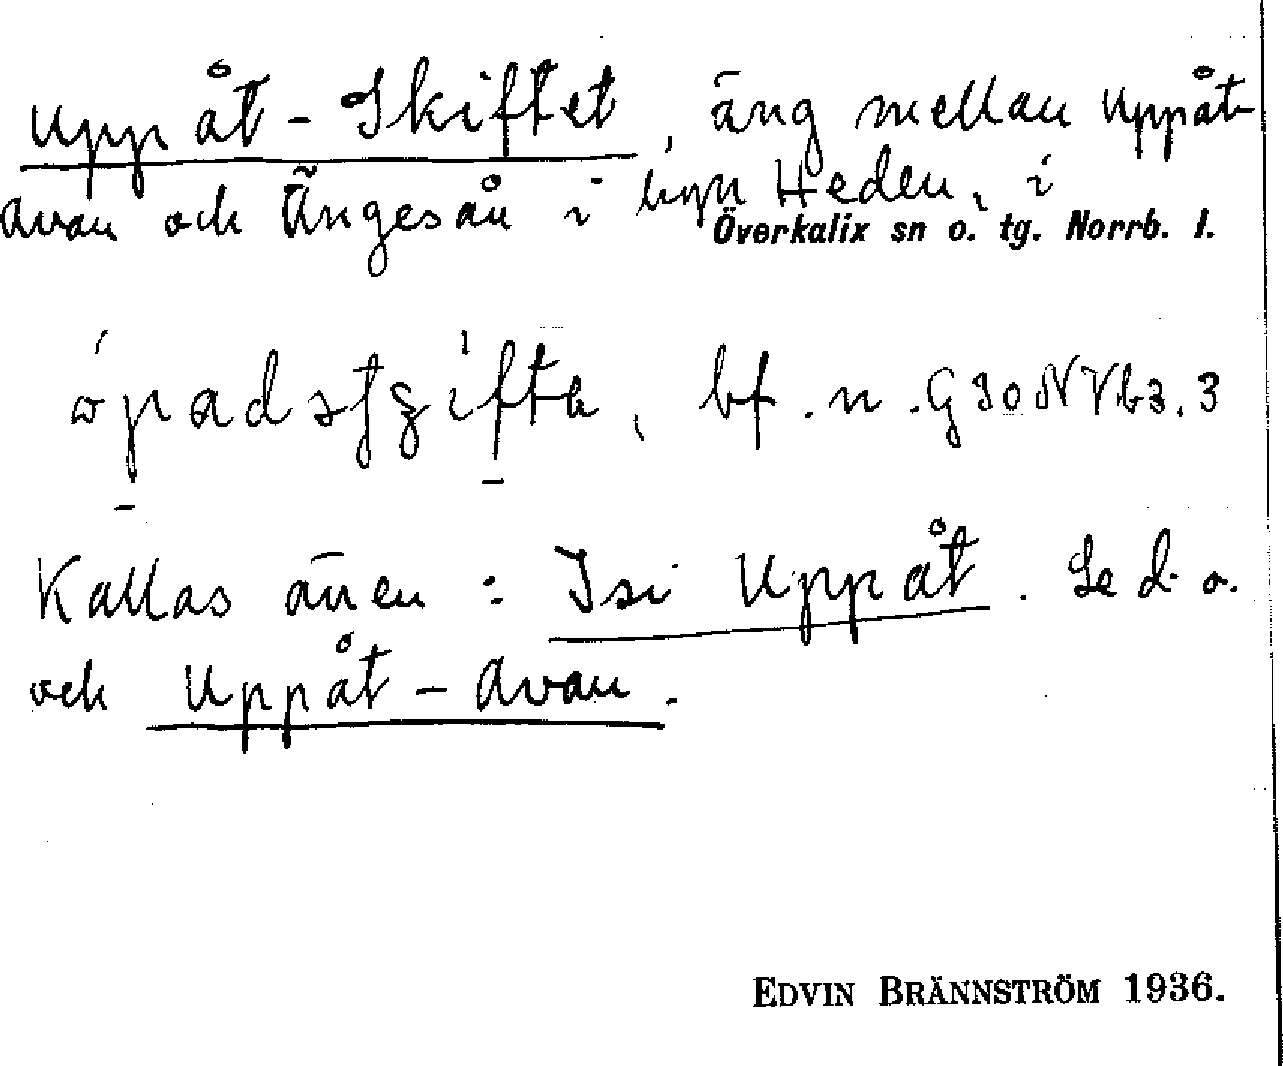 Uppåt-Skiftet, äng mellan Uppåt-
avan och Ängesån i byn Heden, i
Överkalix sn o. tg. Norrb. l.
bf. n. G30NVb3.3
Kallas även: Isi Uppåt. Se d. o.
och Uppåt-avan.
EDVIN BRÄNNSTRÖM 1936.